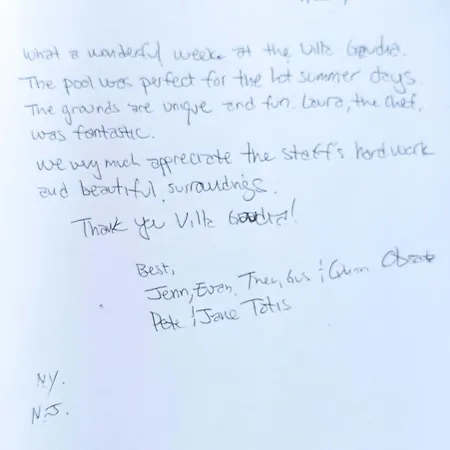 What a wonderful week at the Villa Gaudia.
The pool was perfect for the hot summer days.
The grounds are unique and fun. Laura, the chef,
was fantastic.
We very much appreciate the staff's hard work
and beautiful surroundings.
Thank you Villa Gaudia!
Best,
Jenn, Evan, Gus & Quinn
Pete & Jane Totis
NY.
N.J.